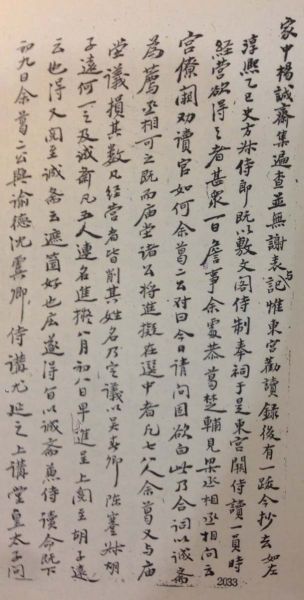 家中楊誠齋集遍查並無謝表與記惟東宮勸讀錄後有一跋今抄去如左
淳熙乙巳史方叔侍郎既以敷文閣待制奉祠于是東宮闕侍讀一員時
經營欲得之者甚衆一日詹事余處恭葛楚輔見梁丞相丞相問云
宮僚闕勸讀官如何余葛二公對曰今日請間固欲白此乃合詞以誠齋
為薦丞相可之既而廟堂諸公將進擬在選中者凡七八人余葛又与廟
堂議損其數凡經營者皆削其姓名乃定議以吳春卿陳蕃叔胡
子遠何一之及誠齋凡五人連名進擬八月初八日早進呈上閱至胡子遠
云也得又閱至誠齋云遮箇好也底遂得旨以誠齋兼侍讀命既下
初九日余葛二公與諭德沈虞卿侍講尤延之上講堂皇太子問
2033